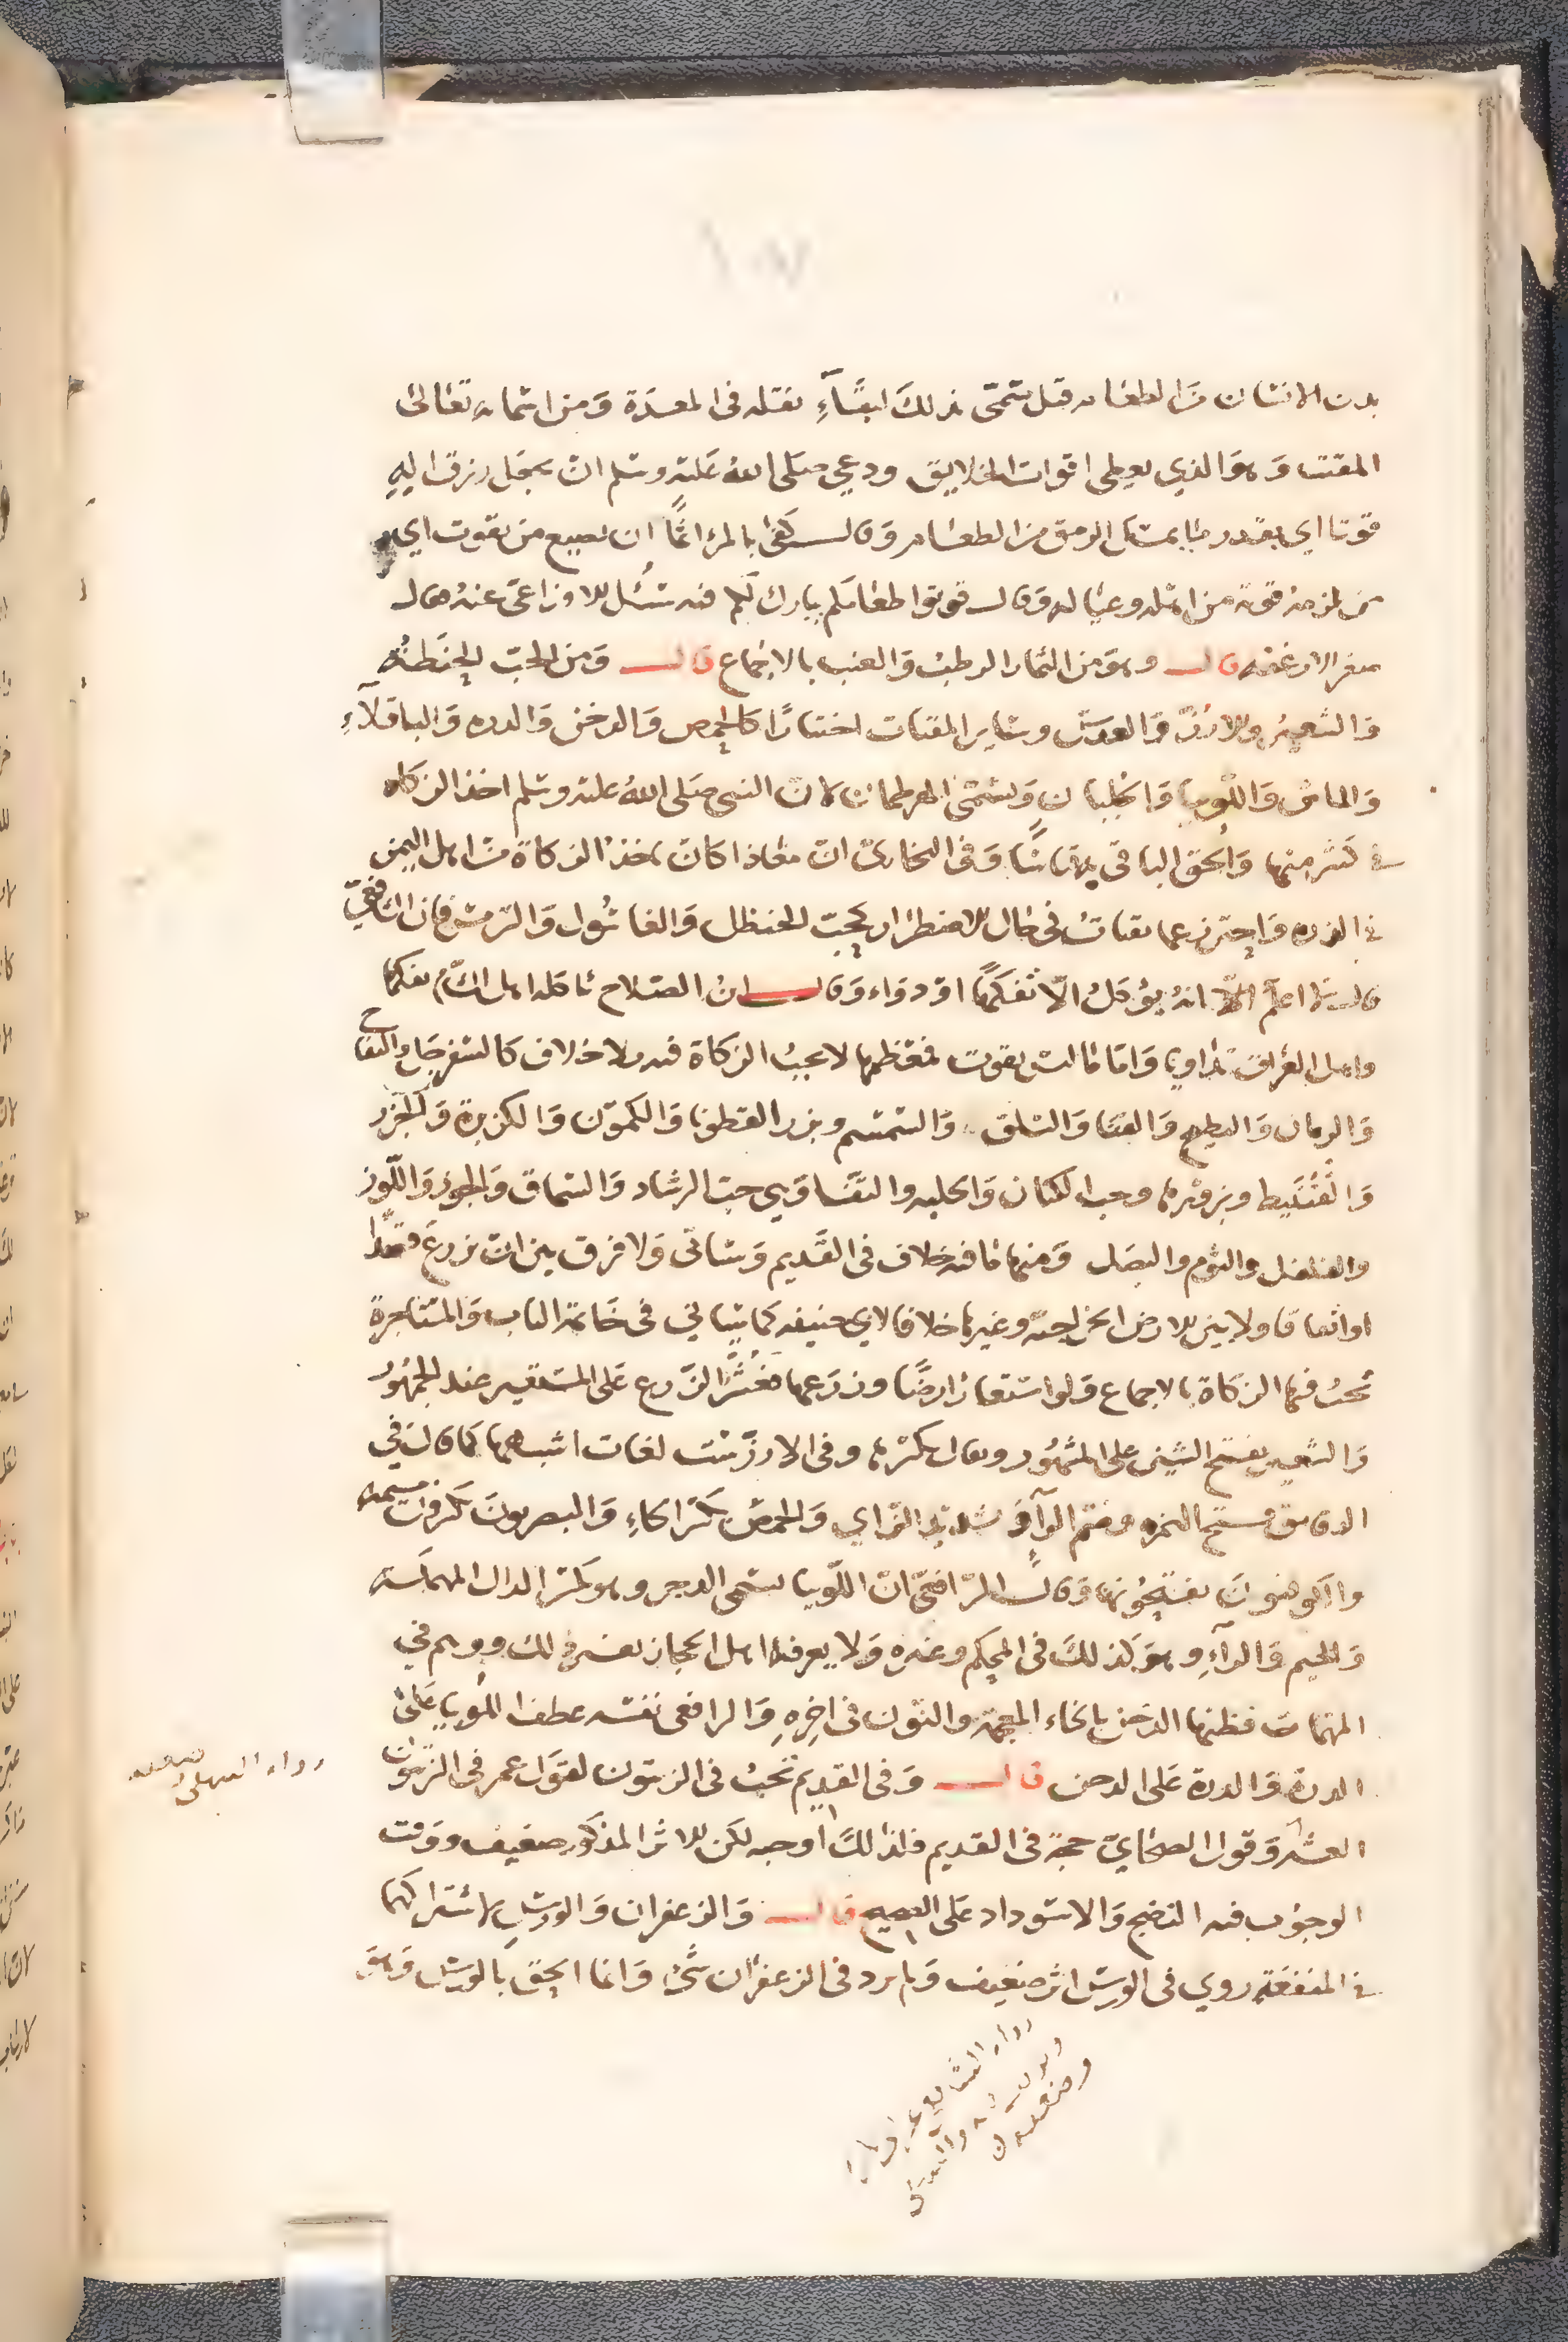 بدن الانسان من الطعام قيل سمى بذلك لبقاء نفله فى المعدة ومن اسمائه تعالى
المقيت وهو الذي يعطي اقوات الخلايق ودعي صلى الله عليه وسلم ان يجعل رزق اله
قوتا اي بقدر ما يمسك الرمق من الطعام وقال كفى بالمرء اثما ان يضيع من يقوت اي
من تلزمه قوته من اهله وعياله وقال قوتوا طعامكم يبارك لكم فيه سئل الاوزاعي عنه فقال
صغر الارغفة قال وهو من الثمار الرطب والعنب بالاجماع قال ومن الحب الحنطة
والشعير والارز والعدس وساير المقتات اختيارا كالحمص والدخن والذرة والباقلاء
والماش واللوبيا والجلبان ويسمى الهرطمان لان النبي صلى الله عليه وسلم اخذ الزكاة
في كثير منها والحق الباقي به قياسا وفي البخاري ان معاذا كان ياخذ الزكاة من اهل اليمن
في الذرة واحترز عما يقتات في حال الاضطرار كحب الحنظل والغاسول والترمس فان الشافعي
قال لا اعلم انه يؤكل الا تفكها او دواء وقال ابن الصلاح تاكله اهل الشام تفكها
واهل العراق تداويا واما ما ليس بقوت فمعظمها لا تجب الزكاة فيه بلا خلاف كالسفرجل والتفاح
والرمان والبطيخ والقثا والسلق والسمسم وبزر القطونا والكمون والكزبرة والجزر
والقنبيط وبزرهما وحب الكتان والحلبه والثفا وهي حب الرشاد والسماق والجوز واللوز
والفلفل والثوم والبصل ومنها ما فيه خلاف في القديم وسياتي ولا فرق بين ان زرع قصدا
او اتفاقا ولا بين الارض الخراجية وغيرها خلافا لابي حنيفة كما سياتي في خاتمة الباب والمستاجرة
تجب فيها الزكاة بالاجماع ولو استعار ارضا وزرعها فعشر الزرع على المستعير عند الجمهور
والشعير بفتح الشين على المشهور ويقال بكسرها وفي الارز ست لغات اشهرها كما قال في
الدقايق فتح الهمزة وضم الراء وتشديد الزاي والحمص بكسر الحاء والبصريون يكسرون ميمه
والكوفيون يفتحونها وقال الرافعي ان اللوبيا يسمى الدجر وهو بكسر الدال المهملة
والجيم والراء وهو كذلك في المحكم وغيره ولا يعرف اهل الحجاز بغير ذلك ووهم في
المهمات فظنها الدخن بالخاء المعجمة والنون في اخره والرافعي نفسه عطف اللوبيا على
الذرة والذرة على الدخن قال وفي القديم تجب في الزيتون لقول عمر في الزيتون
العشر وقول الصحابي حجة في القديم فلذلك اوجبه لكن الاثر المذكور ضعيف ووقت
الوجوب فيه النضج والاسوداد على الصحيح قال والزعفران والورس لاشتراكهما
في المنفعة روي في الورس اثر ضعيف ولم يرد في الزعفران شيء وانما الحق بالورس وهو
رواه البيهقي وضعفه
رواه الشافعي
والبيهقي